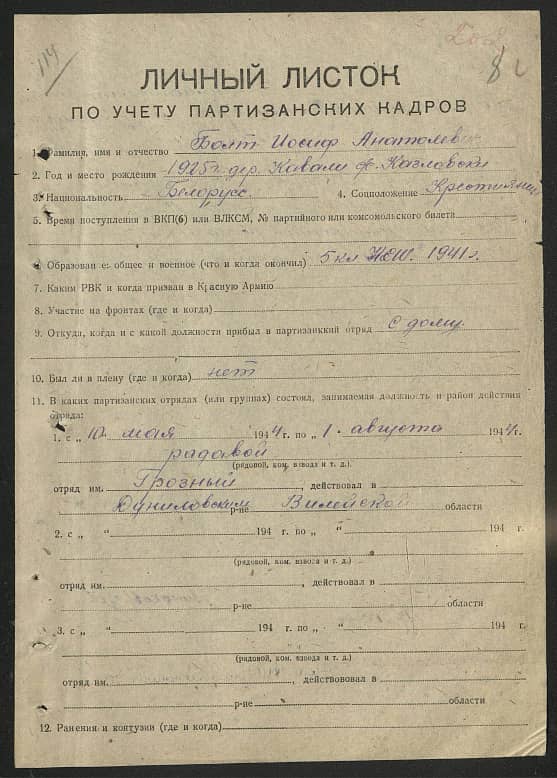 114
8
ЛИЧНЫЙ ЛИСТОК
ПО УЧЕТУ ПАРТИЗАНСКИХ КАДРОВ
1. Фамилия, имя и отчество Болт Иосиф Анатолевич
2. Год и место рождения 1925 г. дер. Кавали Казловски
3. Национальность Белорусс. 4. Соцположение Крестиянин
5. Время поступления в ВКП(б) или ВЛКСМ, № партийного или комсомольского билета
6. Образование: общее и военное (что и когда окончил) 5 кл 1941 г.
7. Каким РВК и когда призван в Красную Армию
8. Участие на фронтах (где и когда)
9. Откуда, когда и с какой должности прибыл в партизанккий отряд с дому.
10. Был ли в плену (где и когда) нет
11. В каких партизанских отрядах (или группах) состоял, занимаемая должность и район действия
отряда:
1. с „ 10 мая 1944 г. по „ 1. августа 1944 г.
радавой
(рядовой, ком. взвода и т. д.)
отряд им. Грозный, действовал в
Дуниловским р-не Вилейской области
2. с „ “ 194 г. по „ “ 194 г.
(рядовой, ком. взвода и т. д.)
отряд им. , действовал в
р-не области
3. с „ “ 194 г. по „ “ 194 г.
(рядовой, ком. взвода и т. д.)
отряд им. , действововал в
р-не области
12. Ранения и контузии (где и когда)